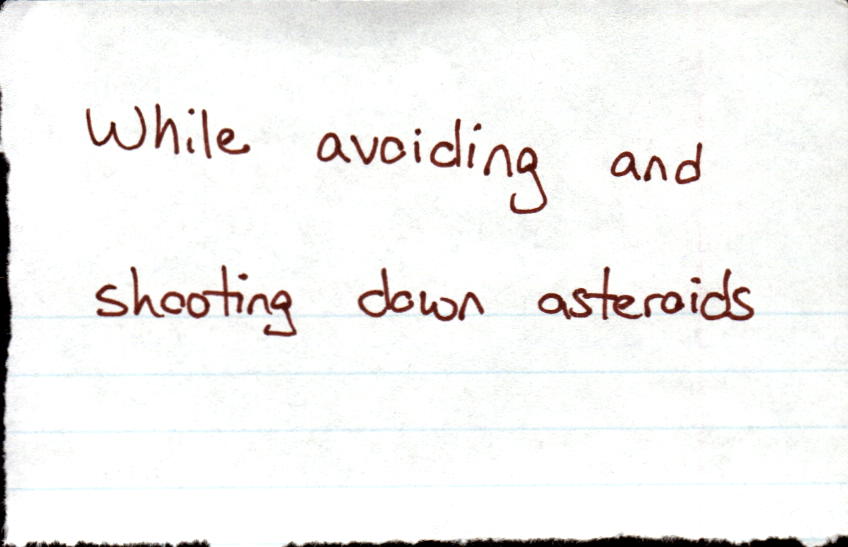 While avoiding and
shooting down asteroids